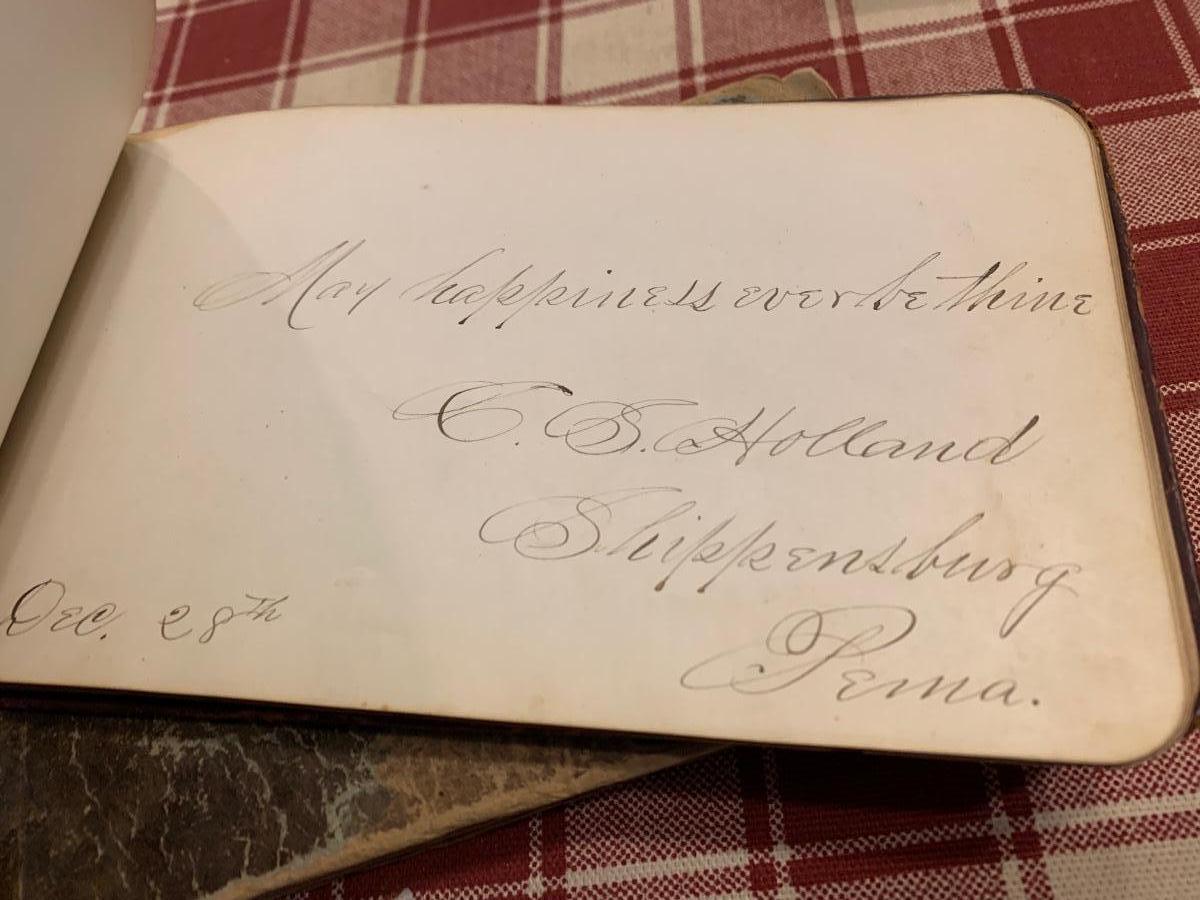 May happiness ever be thine
C. S. Holland
Shippensburg
Penna.
Dec. 28th